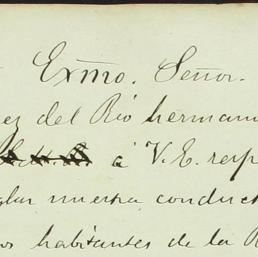 Exmo. Señor.
ez del Río herman
á V.E. resp
lar nuestra conduct
os habitantes de la R